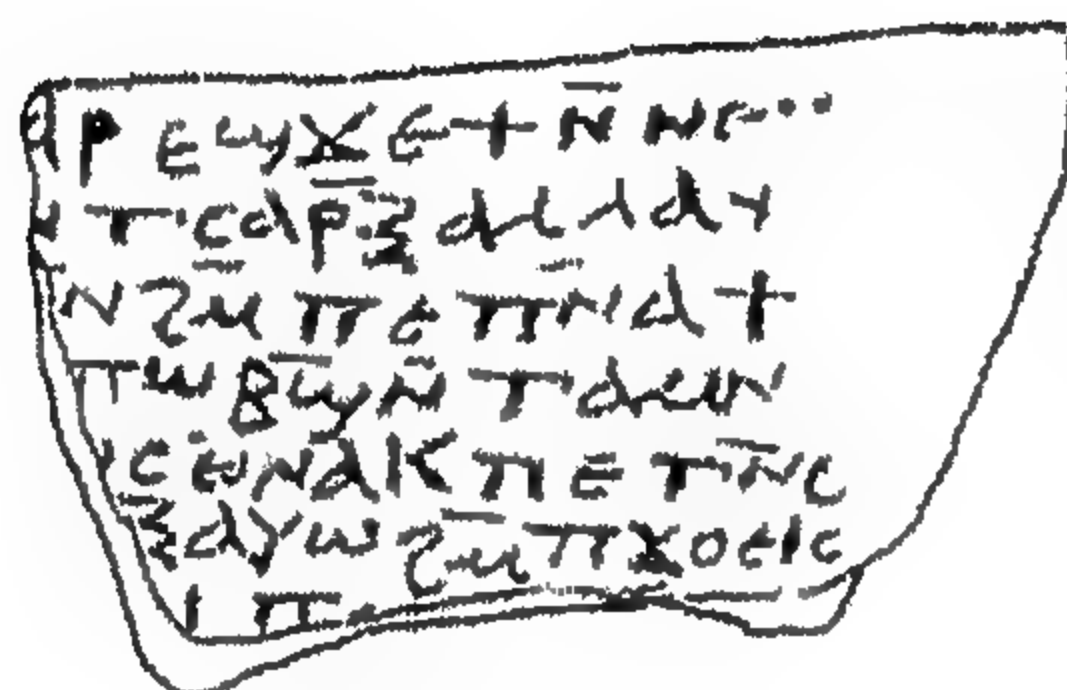 ⲁⲣⲉϣϫⲉϯⲛ̄ⲛⲉ
ⲛⲧⲥⲁⲣ̄ⲝⲁⲗⲗⲁϯ
ⲛϩⲙ̄ⲡⲉⲡⲛ̄ⲁϯ
ⲧⲱⲃϣ̄ⲛ̄ⲧⲁⲉⲓⲛ
ⲥⲱⲛⲁⲕⲡⲉⲧⲛ̄ⲥ
ⲝⲁⲩⲱϩⲙ̄ⲡϫⲟⲉⲓⲥ
ⲓⲡ